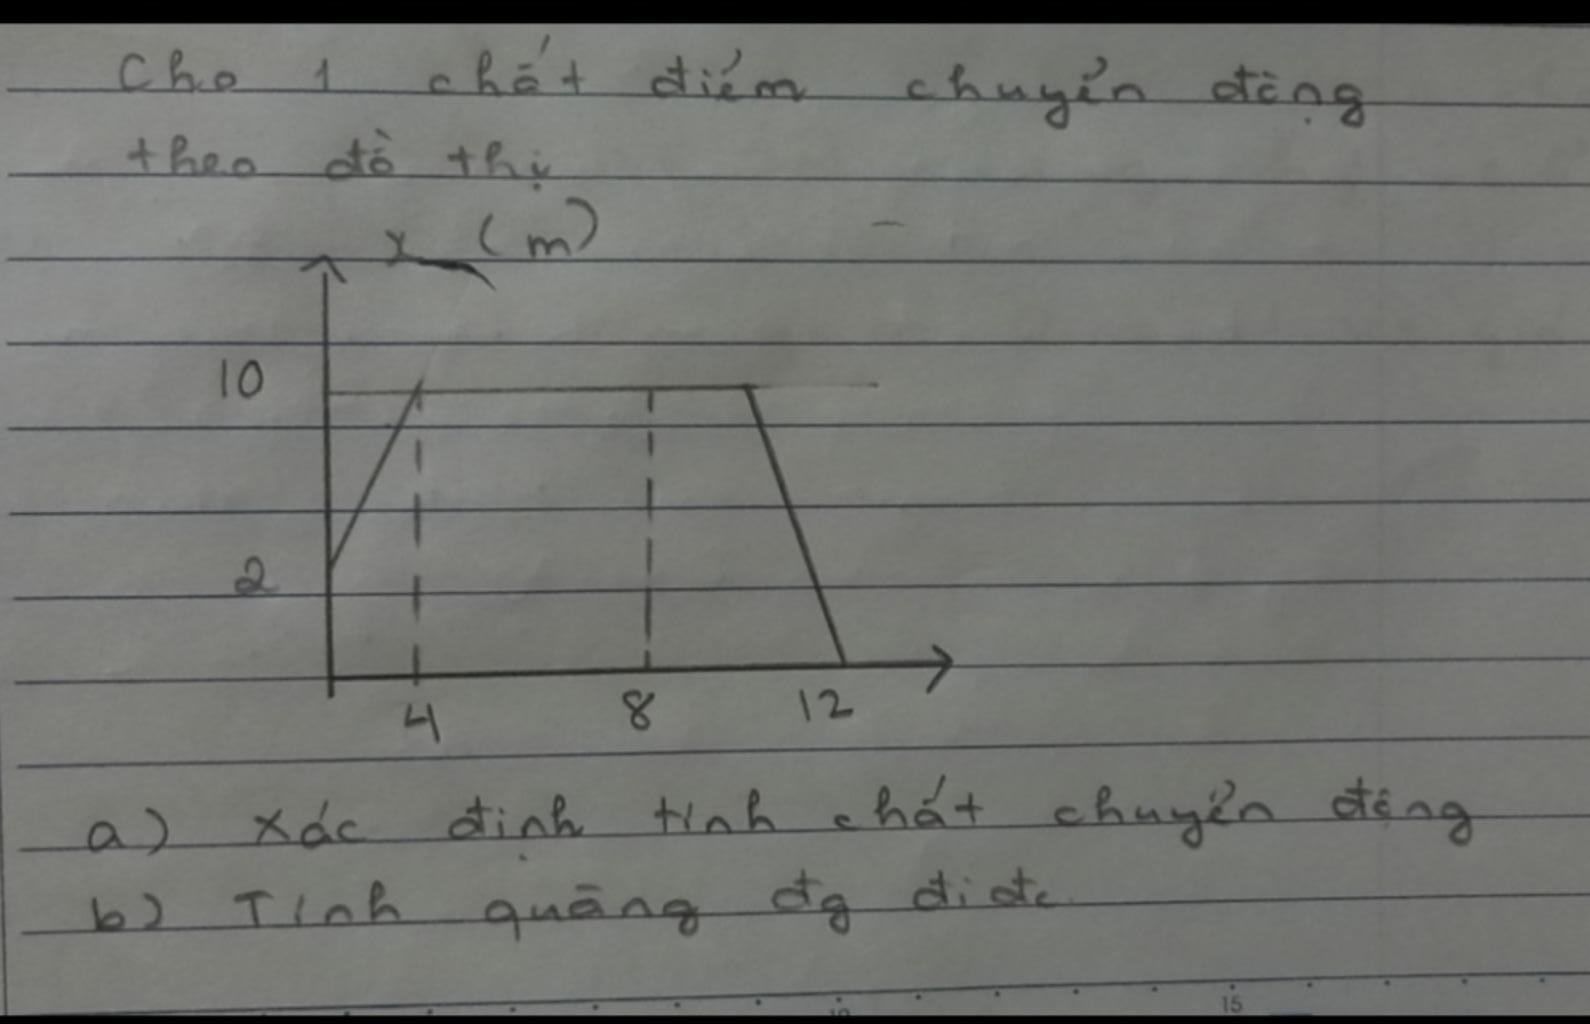 Cho 1 chất điểm chuyển động
theo đồ thị
x (m)
10
2
4 8 12
a) Xác định tính chất chuyển động
b) Tính quãng đg đi đc
15